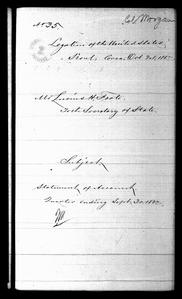 No 35.
Legation of the United States,
Seoul, Corea, Oct 20,
Mr Lucius H. Foote
To the Secretary of State.
Subject
Statement of Account
Quarter ending Sept. 30,